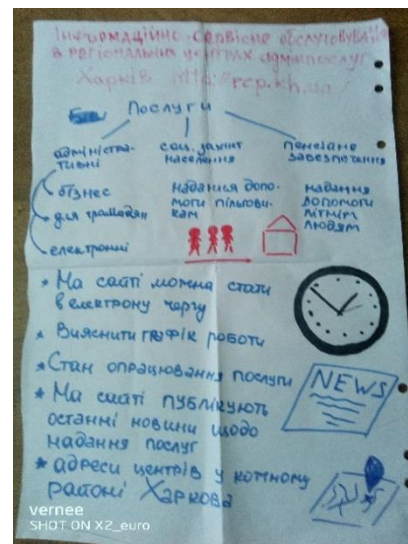 Інформаційно сервісне обслуговування
в регіональних центрах адмінпослуг
Харків http://rcp.kh.ua/
Послуги
адміністра-
тивні
соц. захист
населення
пенсійне
забезпечення
бізнес
для громадян
електронні
надання допо-
моги пільгови-
кам
надання
допомоги
літнім
людям
* На сайті можна стати
в електрону чергу
* Вияснити графік роботи
* Стан опрацювання послуги
* На сайті публікують
останні новини щодо
надання послуг
* адреси центрів у кожному
районі Харкова
NEWS
vernee
SHOT ON X2_euro